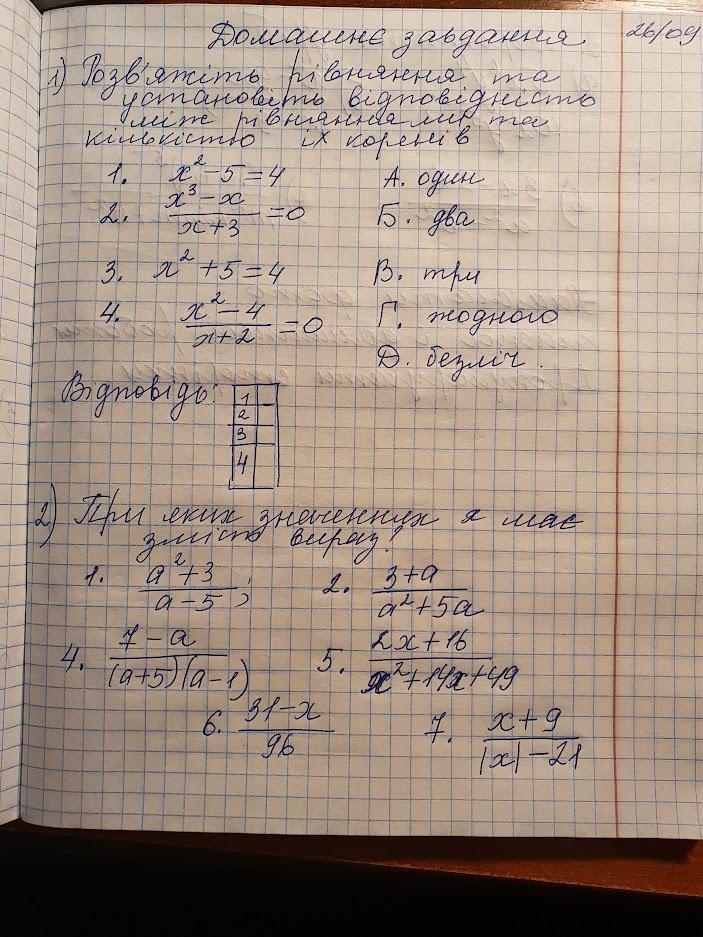 Домашнє завдання 26/09
1) Розв'яжіть рівняння та
установіть відповідність
між рівняннями та
кількістю їх коренів
1. x² - 5 = 4 А. один
2. (x³ - x)/(x + 3) = 0 Б. два
3. x² + 5 = 4 В. три
4. (x² - 4)/(x + 2) = 0 Г. жодного
Д. безліч.
Відповідь:
1
2
3
4
2) При яких значеннях x має
зміст вираз?
1. (a² + 3)/(a - 5); 2. (3 + a)/(a² + 5a)
4. (7 - a)/((a + 5)(a - 1)) 5. (2x + 16)/(x² + 14x + 49)
6. (31 - x)/96 7. (x + 9)/(|x| - 21)